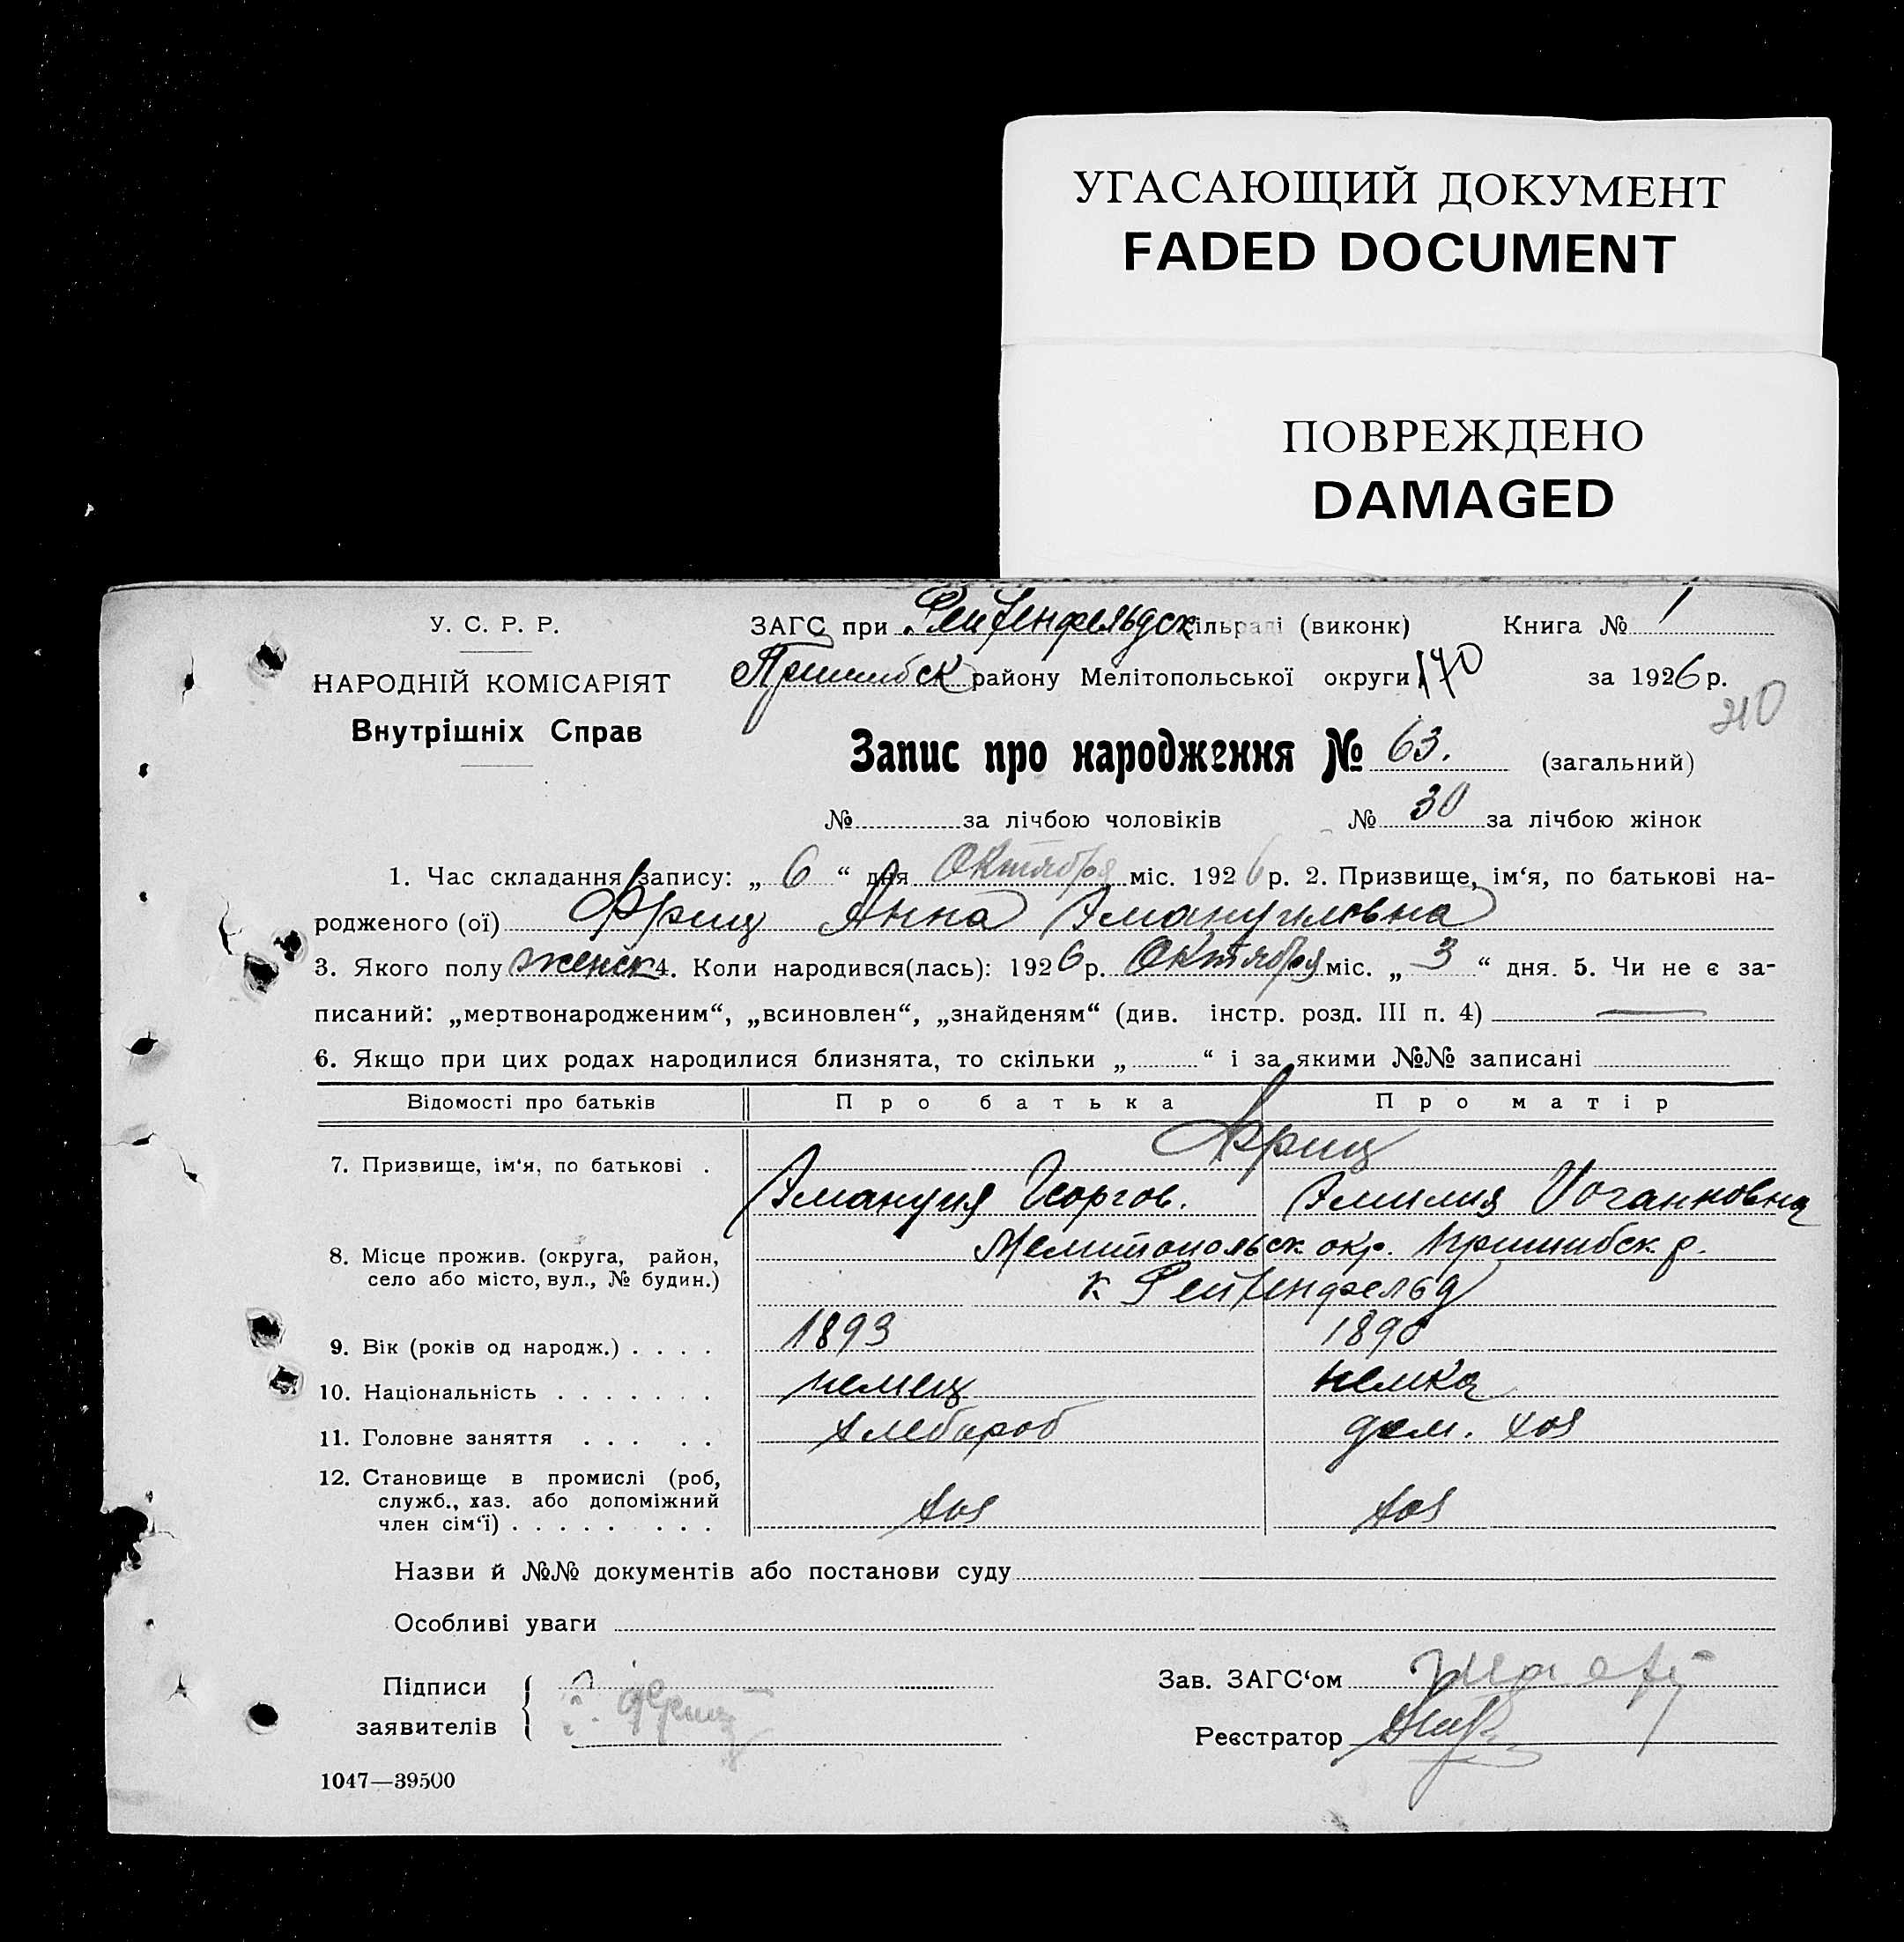 УГАСАЮЩИЙ ДОКУМЕНТ
FADED DOCUMENT
ПОВРЕЖДЕНО
DAMAGED
У. С. Р. Р.
НАРОДНІЙ КОМІСАРІЯТ
Внутрішніх Справ
ЗАГС при Рейхенфельдск сільраді (виконк) Книга № 1
Пришибск району Мелітопольської округи 170 за 1926 р.
210
Запис про народження № 63. (загальний)
№ за лічбою чоловіків № 30 за лічбою жінок
1. Час складання запису: „ 6 “ дня Октября міс. 1926 р. 2. Призвище, ім‘я, по батькові на-
родженого (ої) Фриц Анна Эмануиловна
3. Якого полу женск 4. Коли народився(лась): 1926 р. Октября міс. „ 3 “ дня. 5. Чи не є за-
писаний: „мертвонародженим“, „всиновлен“, „знайденям“ (див. інстр. розд. III п. 4) —
6. Якщо при цих родах народилися близнята, то скільки „ “ і за якими №№ записані
Відомості про батьків Про батька Про матір
7. Призвище, ім‘я, по батькові . Фриц
Эмануил Георгов. Эмилия Иоганновна
8. Місце прожив. (округа, район, село або місто, вул., № будин.) Мелитопольск окр. Пришибск р.
к Рейхенфельд
9. Вік (років од народж.) . . . . 1893 1890
10. Національність . . . . . . . немец немка
11. Головне заняття . . . . . хлебороб дом. хоз
12. Становище в промислі (роб, служб., хаз. або допоміжний член сім‘ї) . . . . . . . . хоз хоз
Назви й №№ документів або постанови суду
Особливі уваги
Підписи заявителів Фриц
Зав. ЗАГС‘ом
Реєстратор
1047—39500